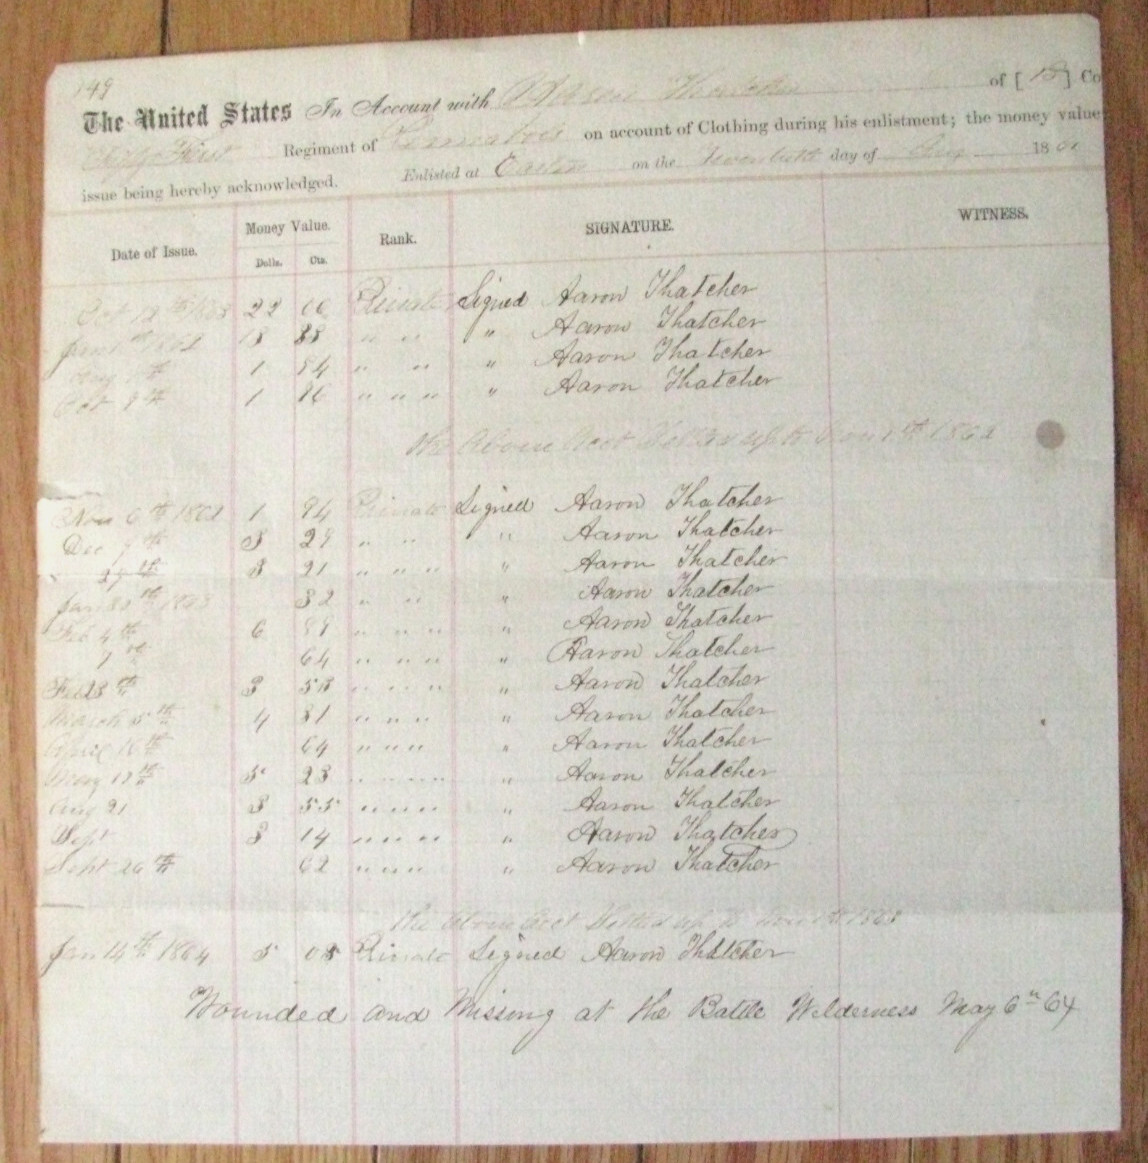 149
The United States In Account with Aaron Thatcher of [ B ] Co
Fifty First Regiment of Penna Vols on account of Clothing during his enlistment; the money value
issue being hereby acknowledged. Enlisted at Easton on the day of Aug 186
Date of Issue. Money Value. Rank. SIGNATURE. WITNESS.
Dolls. Cts.
Oct 12th 22 00 Private Signed Aaron Thatcher
Jan 18 88 " " " Aaron Thatcher
Aug 1 94 " " " Aaron Thatcher
Oct 9th 1 96 " " " " Aaron Thatcher
the above acct Settled up to Nov 1st 1862
Nov 6th 1862 1 94 Private Signed Aaron Thatcher
Dec 9th 3 29 " " " " Aaron Thatcher
29th 3 21 " " " " Aaron Thatcher
Jan 1863 32 " " " " Aaron Thatcher
Feb 4th 6 89 " " " " Aaron Thatcher
64 " " " " Aaron Thatcher
Feb 28th 3 58 " " " " Aaron Thatcher
March 5th 4 81 " " " " Aaron Thatcher
April 16th 64 " " " " Aaron Thatcher
May 18th 5 23 " " " " " Aaron Thatcher
Aug 21 3 55 " " " " " Aaron Thatcher
Sept 3 14 " " " " " Aaron Thatcher
Sept 26th 62 " " " " Aaron Thatcher
the above acct Settled up to 1863
Jan 14th 1864 5 05 Private Signed Aaron Thatcher
Wounded and Missing at the Battle Wilderness May 6th 64